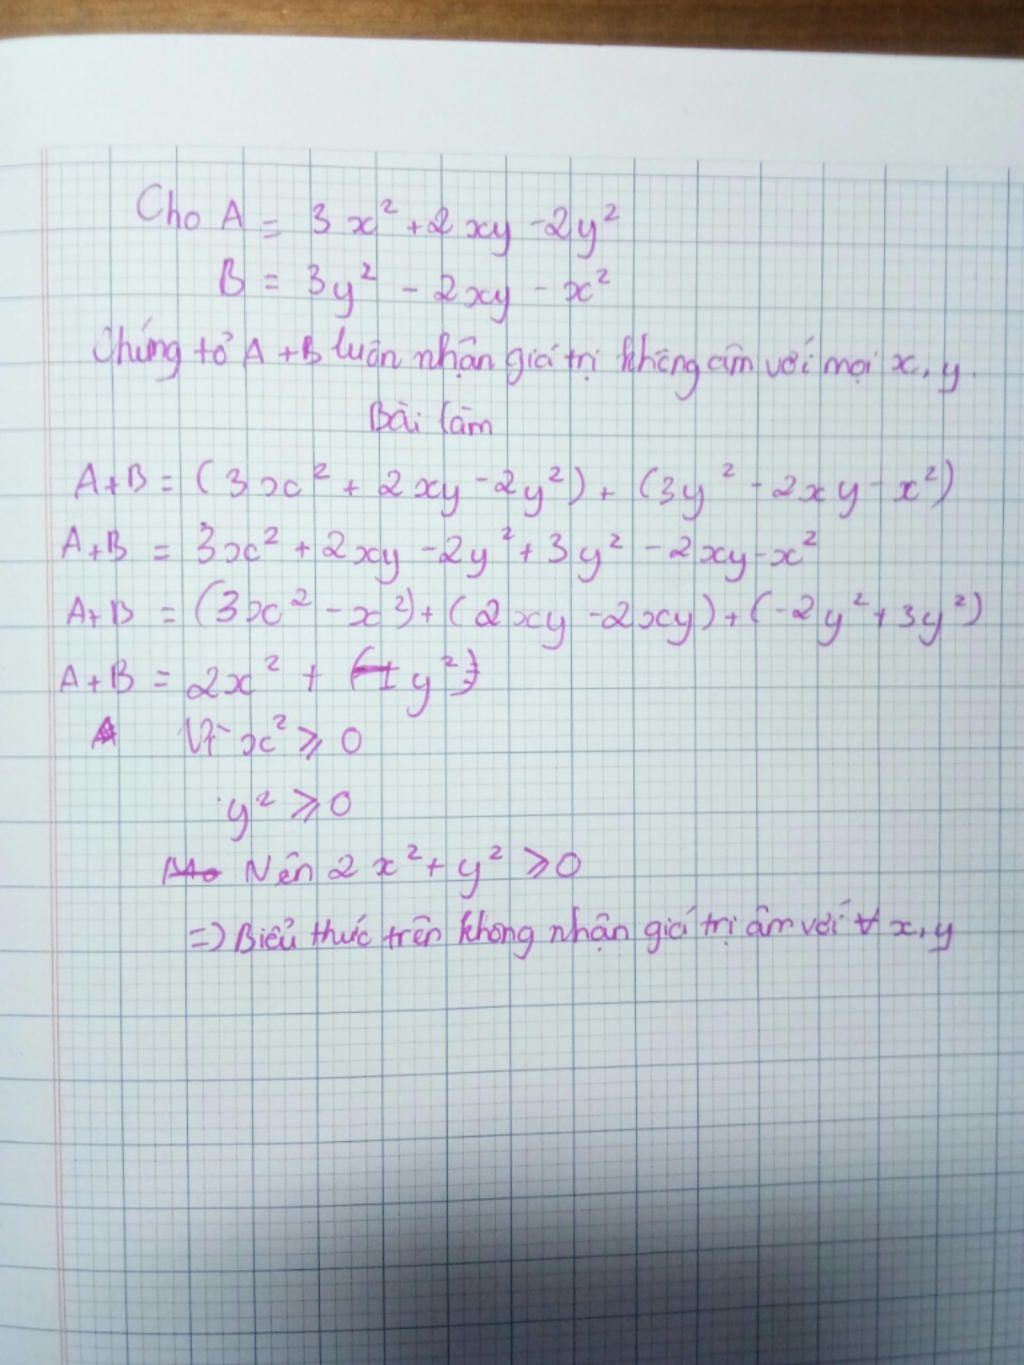 Cho A = 3x² + 2xy - 2y²
B = 3y² - 2xy - x²
Chứng tỏ A + B luôn nhận giá trị không âm với mọi x, y.
Bài làm
A+B = (3x² + 2xy - 2y²) + (3y² - 2xy - x²)
A+B = 3x² + 2xy - 2y² + 3y² - 2xy - x²
A+B = (3x² - x²) + (2xy - 2xy) + (-2y² + 3y²)
A+B = 2x² + y²
Vì x² ⩾ 0
y² ⩾ 0
Nên 2x² + y² ⩾ 0
=> Biểu thức trên không nhận giá trị âm với ∀ x, y